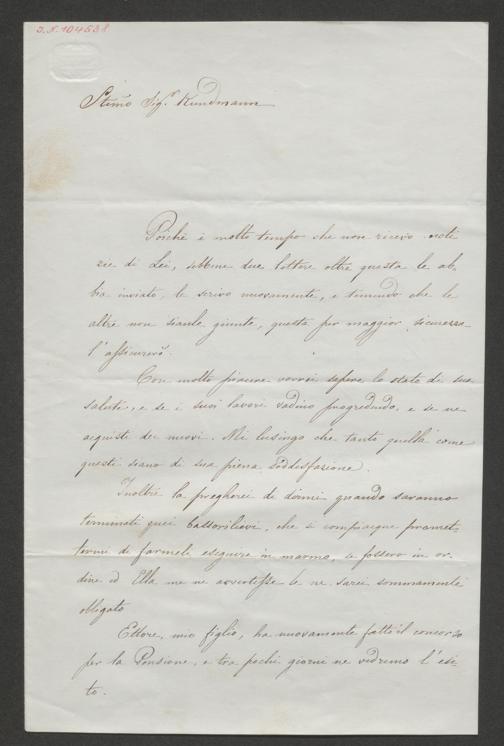 J.N. 104538
Stimo Sigr. Kundmann
Poichè è molto tempo che non ricevo noti
zie di Lei, sebbene due lettere oltre questa le ab,
bia inviato, le scrivo nuovamente, e temendo che le
altre non sianle giunte, questa per maggior sicurezza
l'assicurerò.
Con molto piacere vorrei sapere lo stato di sua
salute, e se i suoi lavori vadino progredendo, e se ne
acquisti dei nuovi. Mi lusingo che tanto quella come
questi siano di sua piena soddisfazione.
Inoltre la pregherei di dirmi quando saranno
terminati quei bassorilievi, che si compiacque promet-
termi di farmeli eseguire in marmo, se fossero in or-
dine ed Ella me ne avvertisse le ne sarei sommamente
obbligato
Ettore, mio figlio, ha nuovamente fatto il concorso
per la Pensione, e tra pochi giorni ne vedremo l'esi-
to.